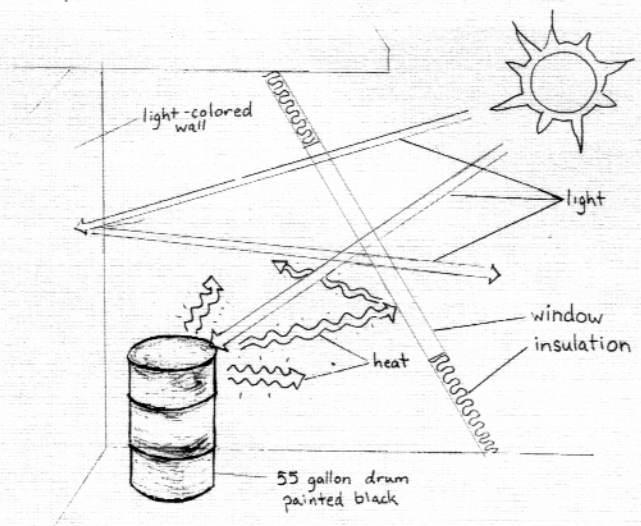 light-colored
wall
light
window
insulation
heat
55 gallon drum
painted black